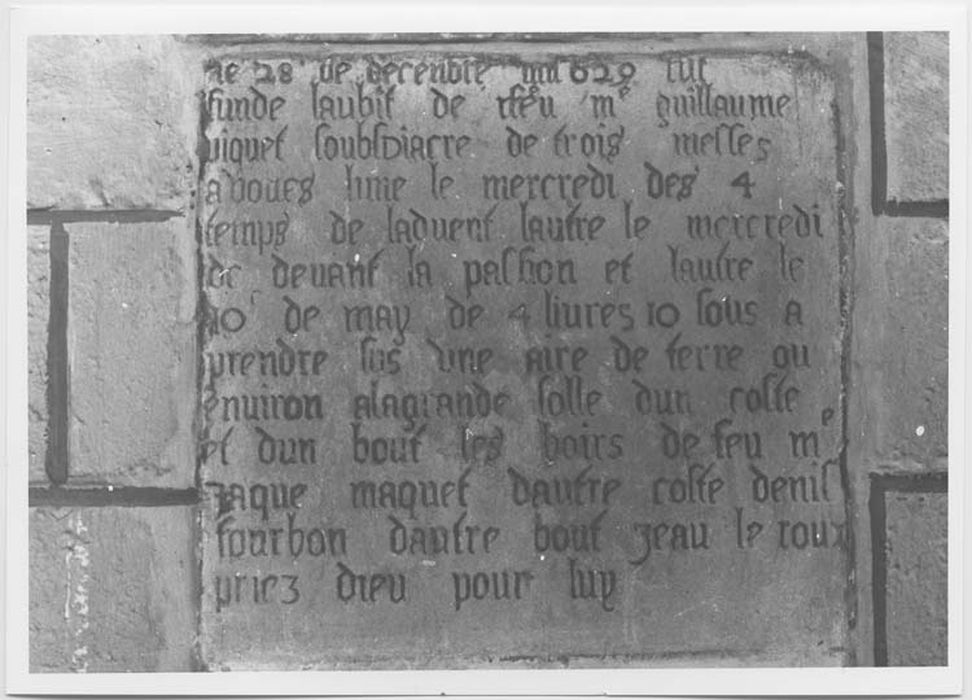 le 28 de decenbre mil 629 fut
funde laubit de deffeu mᵉ guillaume
uiquet soubsdiacre de trois messes
a uoues lune le mercredi des 4
temps de laduent lautre le mercredi
de deuant la passion et lautre le
10 de may de 4 liures 10 sous a
prendre sus une aire de terre ou
enuiron alagrande solle dun coste
et dun bout les hoirs de feu mᵉ
zaque maquet dautre coste denis
fourbon dautre bout zeau le roux
priez dieu pour luy